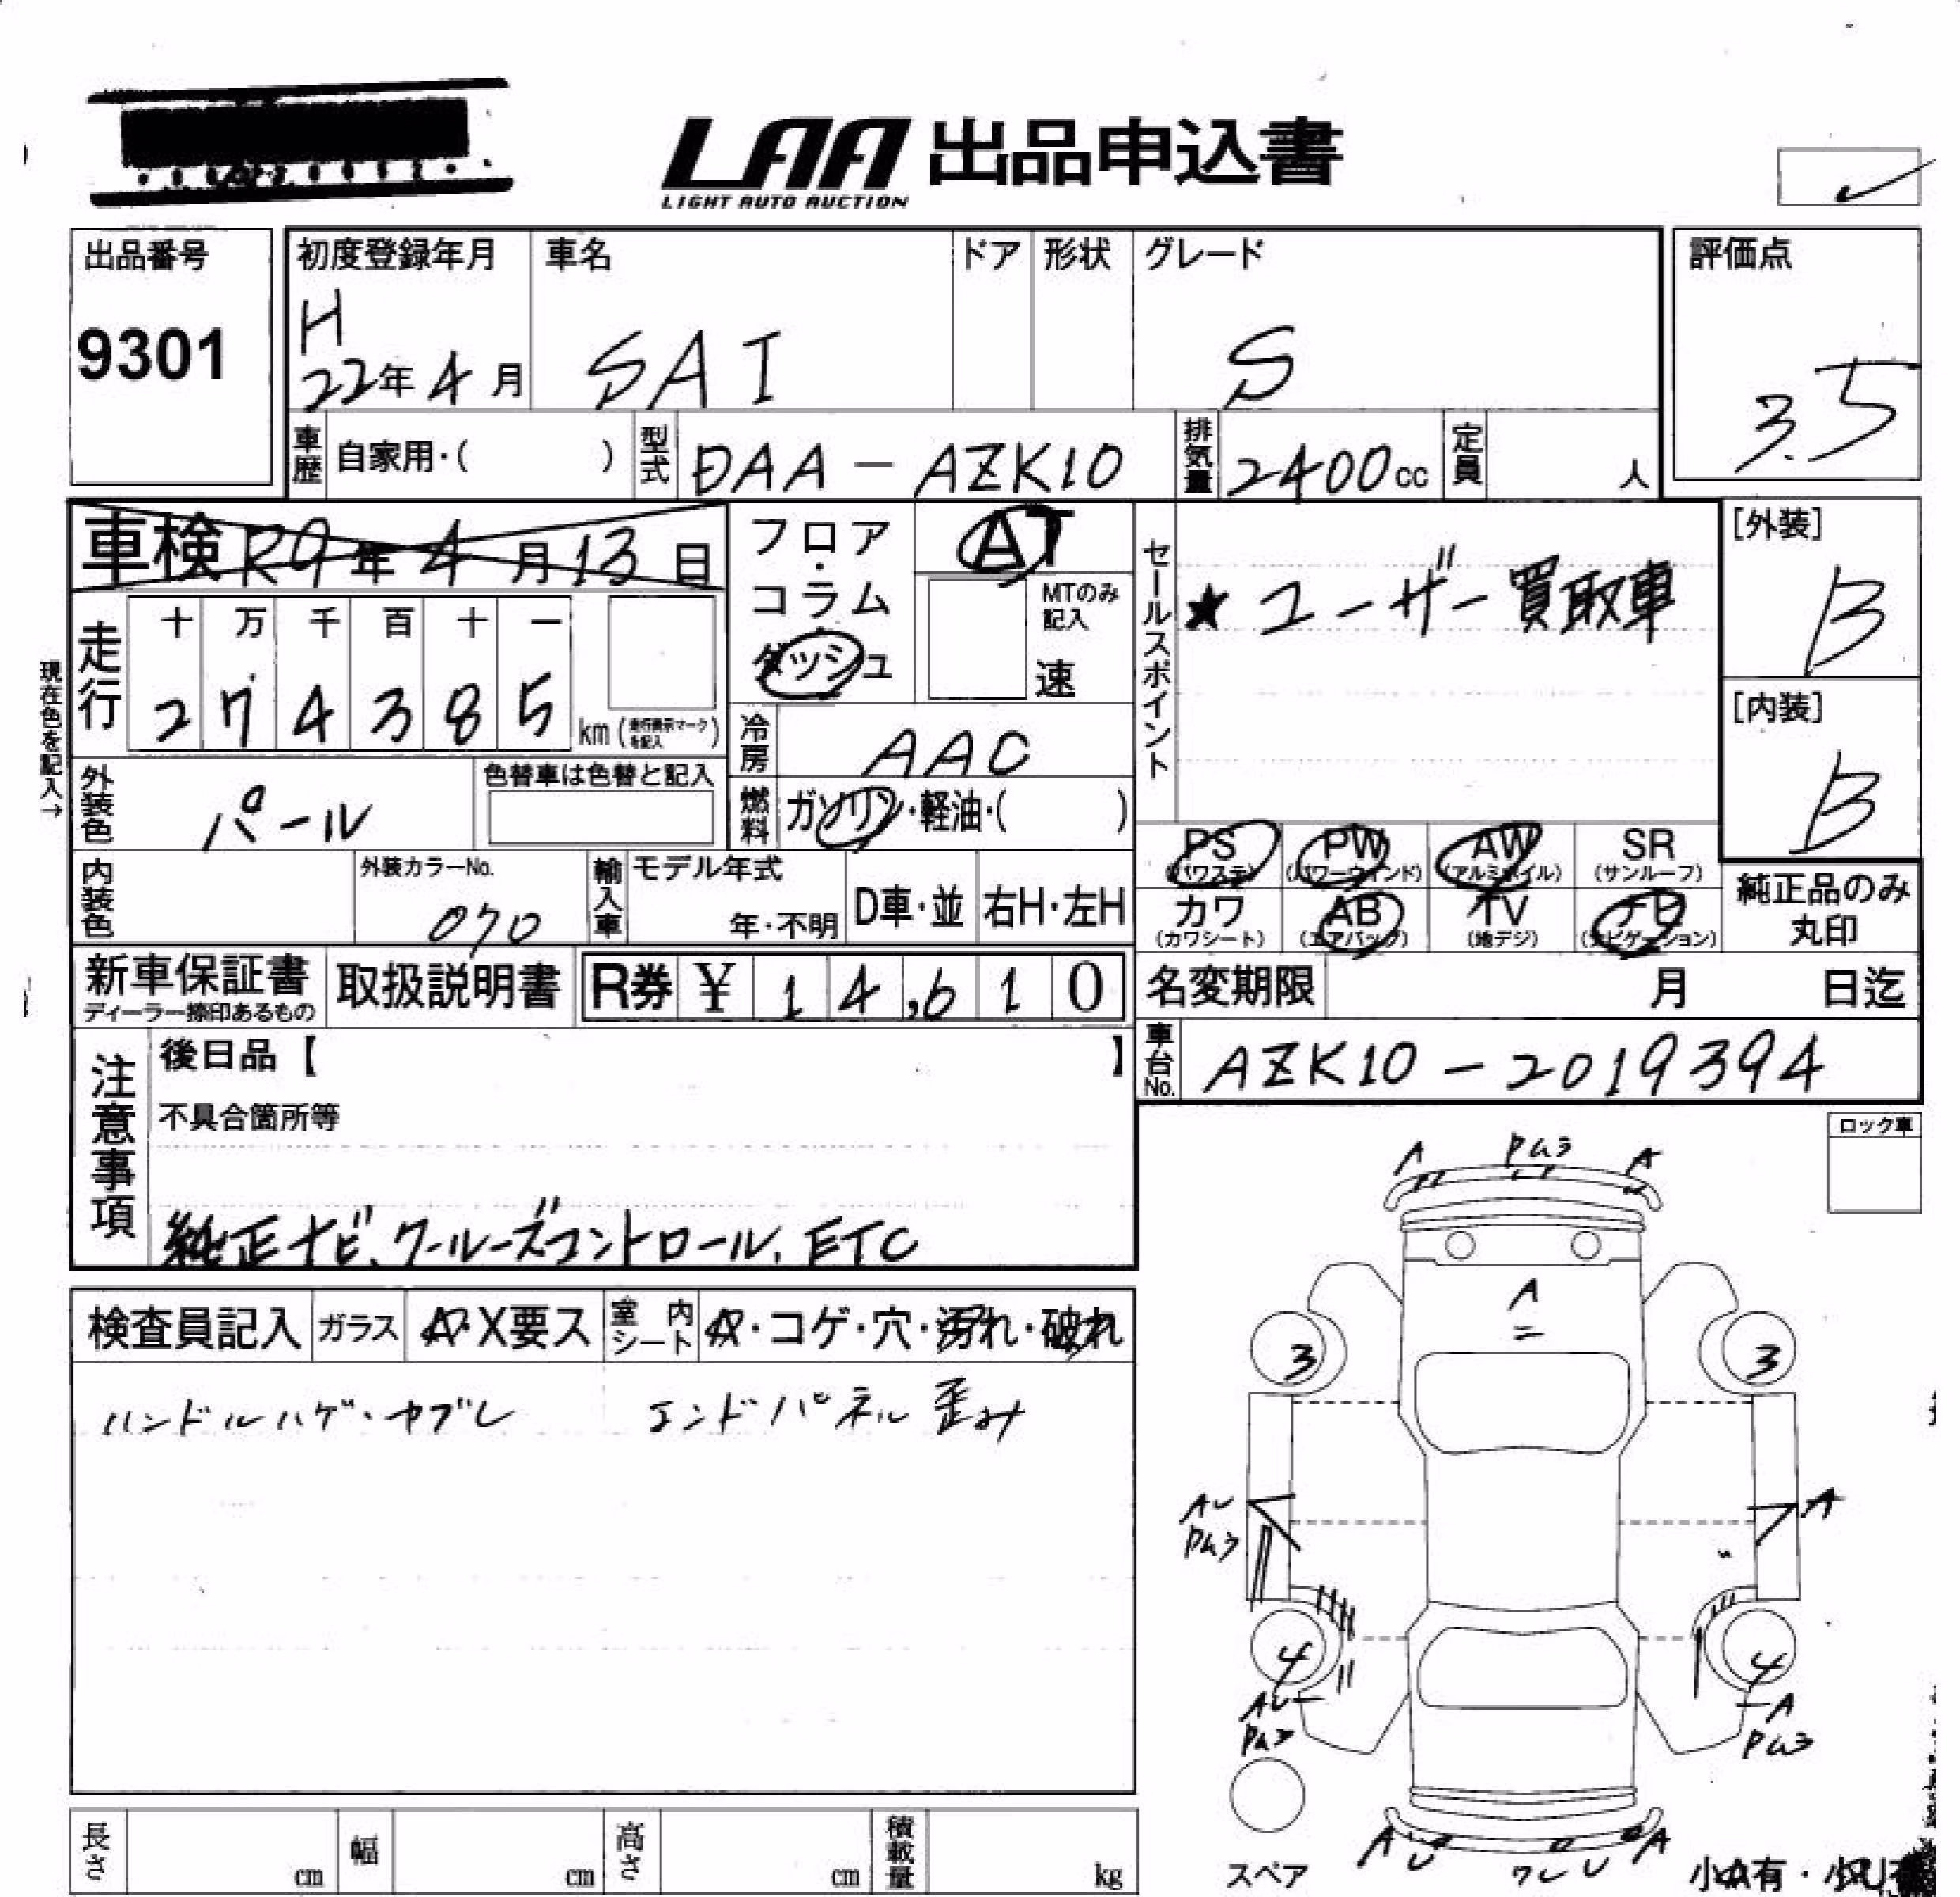 LAA 出品申込書
LIGHT AUTO AUCTION
出品番号
9301
初度登録年月
H
22年 4月
車名
SAI
ドア
形状
グレード
S
評価点
3.5
車歴
自家用・( )
型式
DAA-AZK10
排気量
2400cc
定員
人
車検 R9年 4月 13日
現在色を記入→
走行
十 万 千 百 十 一
2 7 4 3 8 5
km (走行表示マークを記入)
外装色
パール
色替車は色替と記入
内装色
外装カラーNo.
070
フロア・コラム・ダッシュ
AT
MTのみ記入
速
冷房
AAC
燃料
ガソリン・軽油・( )
輸入車
モデル年式
年・不明
D車・並
右H・左H
セールスポイント
★ユーザー買取車
[外装]
B
[内装]
B
PS (パワステ)
PW (パワーウインド)
AW (アルミホイル)
SR (サンルーフ)
カワ (カワシート)
AB (エアバッグ)
TV (地デジ)
ナビ (ナビゲーション)
純正品のみ丸印
新車保証書
ディーラー捺印あるもの
取扱説明書
R券 ¥ 14,610
名変期限
月 日迄
車台No.
AZK10-2019394
注意事項
後日品【 】
不具合箇所等
純正ナビ、クールーズコントロール、ETC
検査員記入
ガラス
A・X要ス
室内シート
A・コゲ・穴・汚れ・破れ
ハンドルハゲ・ヤブレ エンドパネル歪み
ロック車
A Pa3 A
A
3 3
AU
Pa3
A
4 4
AU
Pa3
A
Pa3
A U ワレ U A
スペア
長さ cm
幅 cm
高さ cm
積載量 kg
小A有・小U有